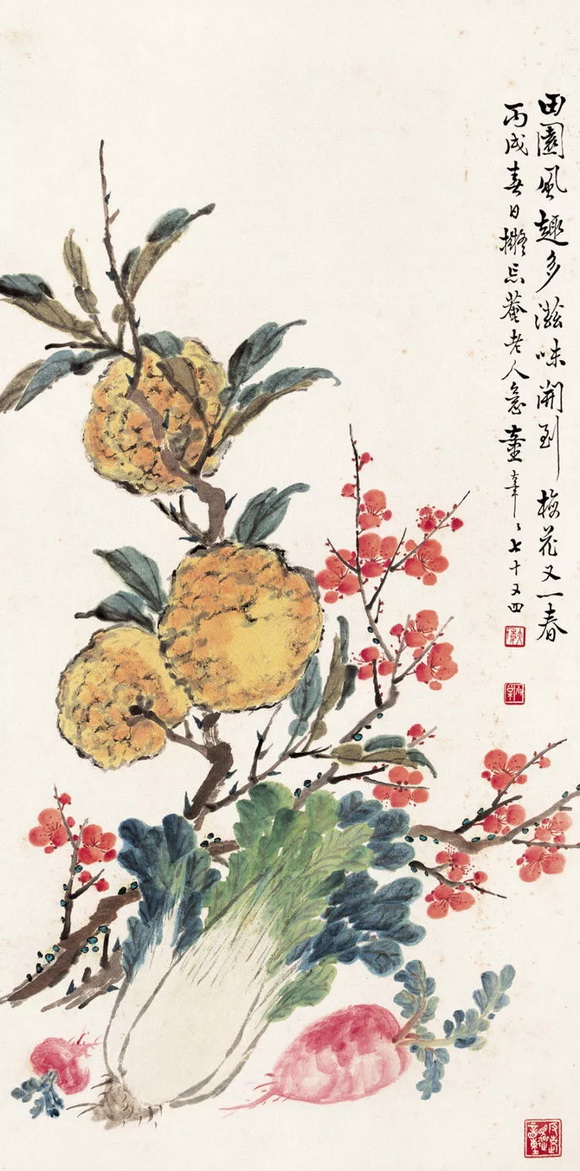 田園風趣多滋味開到梅花又一春
丙戌春日擬忘菴老人意童七十又四